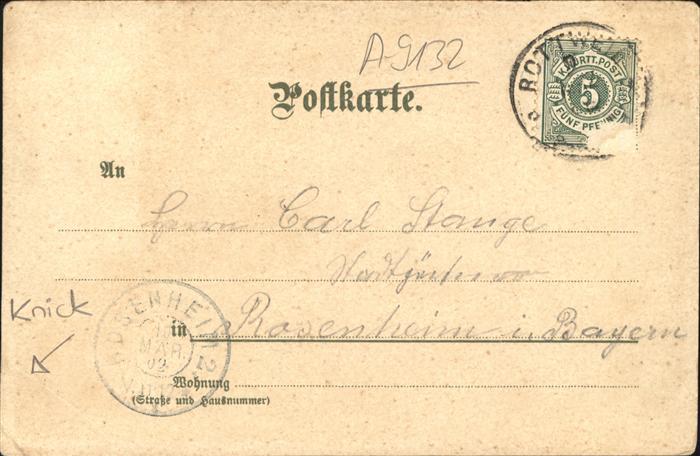 A-9132
ROTTW
K. WÜRTT. POST
5
FÜNF PFENNIG
Postkarte.
An
Herrn Carl Stange
Stadtgärtner
Knick
ROSENHEIM 2
MAR
02
in Rosenheim i. Bayern
Wohnung
(Straße und Hausnummer)